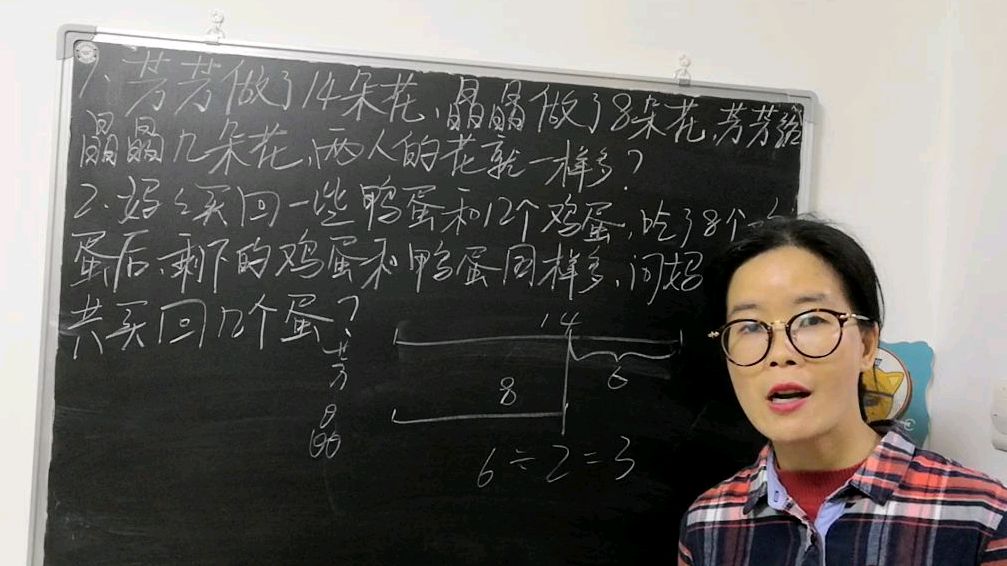 1、芳芳做了14朵花,晶晶做了8朵花,芳芳给
晶晶几朵花,两人的花就一样多?
2、妈々买回一些鸭蛋和12个鸡蛋,吃了8个
蛋后,剩下的鸡蛋和鸭蛋同样多,问妈
共买回几个蛋?
14
芳
6
8
晶
6÷2=3